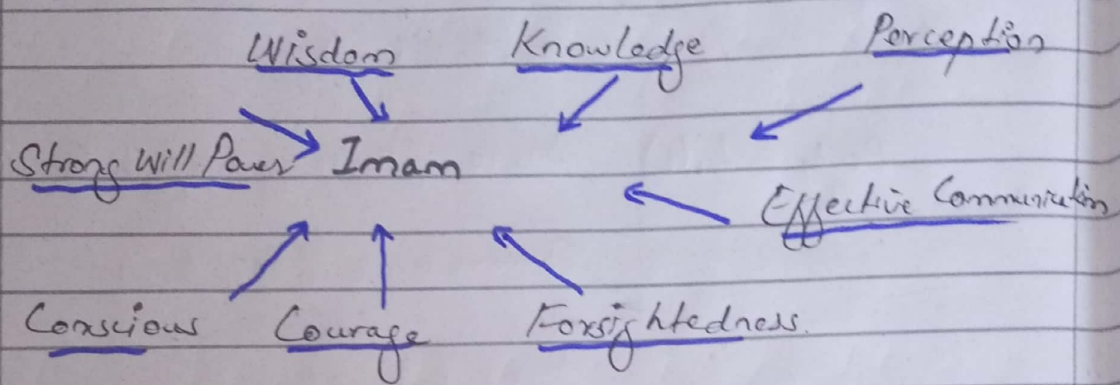 Wisdom Knowledge Perception
Strong Will Power Imam
Effective Communication
Conscious Courage Forsightedness.